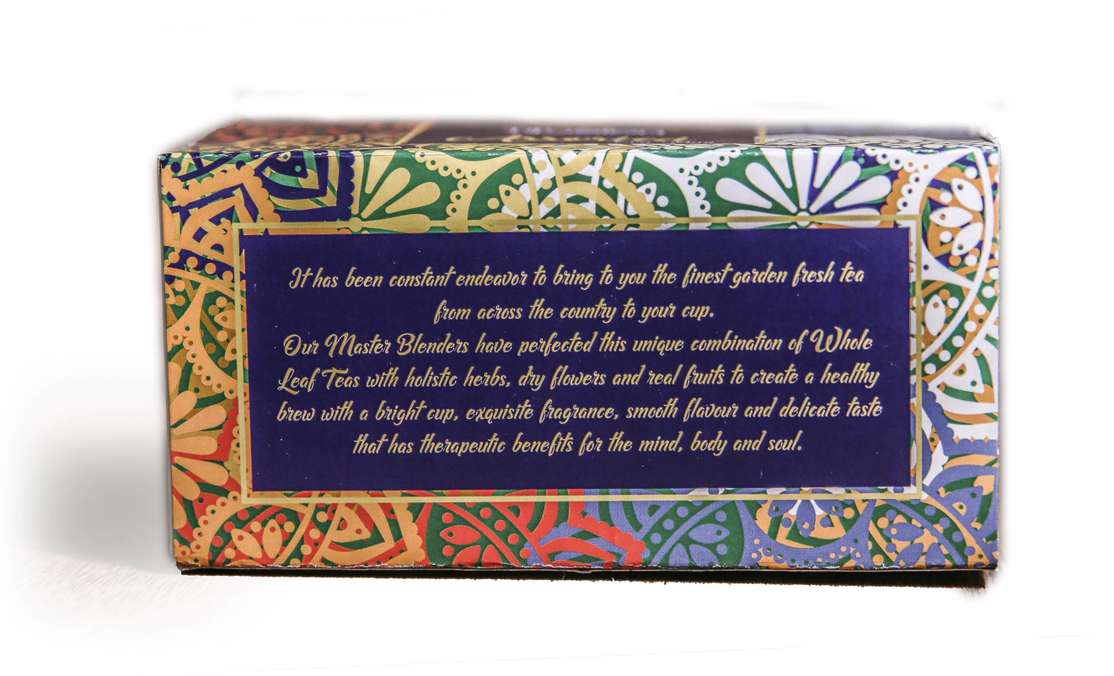 It has been constant endeavor to bring to you the finest garden fresh tea
from across the country to your cup.
Our Master Blenders have perfected this unique combination of Whole
Leaf Teas with holistic herbs, dry flowers and real fruits to create a healthy
brew with a bright cup, exquisite fragrance, smooth flavour and delicate taste
that has therapeutic benefits for the mind, body and soul.